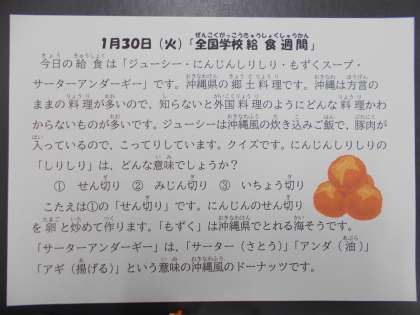 1月30日（火）「全国学校給食週間」
今日の給食は「ジューシー・にんじんしりしり・もずくスープ・
サーターアンダーギー」です。沖縄県の郷土料理です。沖縄は方言の
ままの料理が多いので、知らないと外国料理のようにどんな料理かわ
からないものが多いです。ジューシーは沖縄風の炊き込みご飯で、豚肉が
入っているので、こってりしています。クイズです。にんじんしりしりの
「しりしり」は、どんな意味でしょうか？
① せん切り ② みじん切り ③ いちょう切り
こたえは①の「せん切り」です。にんじんのせん切り
を卵と炒めて作ります。「もずく」は沖縄県でとれる海そうです。
「サーターアンダーギー」は、「サーター（さとう）」「アンダ（油）」
「アギ（揚げる）」という意味の沖縄風のドーナッツです。